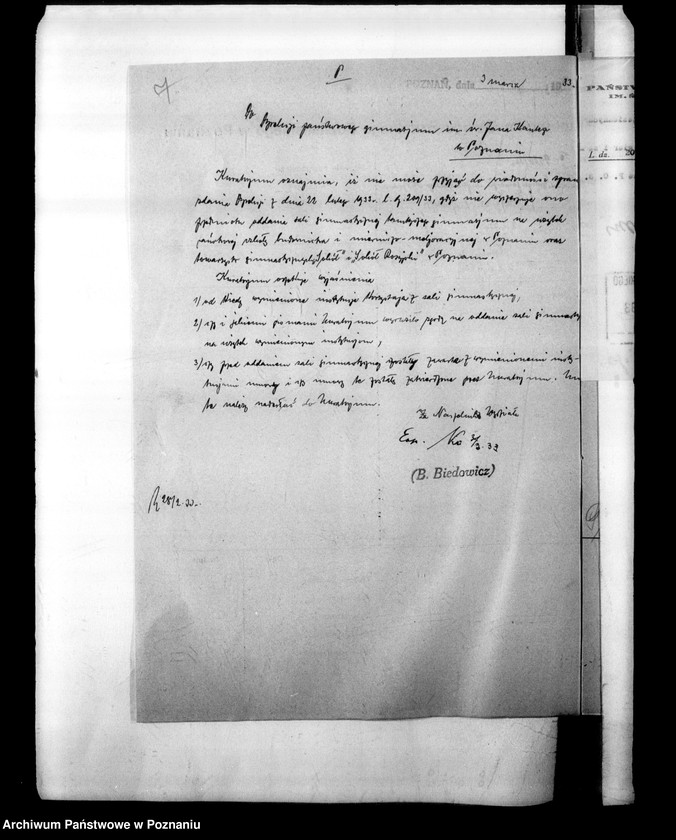 POZNAŃ, dnia 3 marca 1933.
Do Dyrekcji państwowego gimnazjum im. św. Jana Kantego
w Poznaniu
Kuratorjum oznajmia, iż nie może przyjąć do wiadomości sprawozdania Dyrekcji z dnia 22 lutego 1933. L. dz. 209/33, gdyż nie
oddania sali gimnastycznej tamtejszego gimnazjum na użytek
państwowej szkoły budownictwa i mierniczo-meljoracyjnej w Poznaniu oraz
towarzystw gimnastycznych „Sokół" i w Poznaniu.
Kuratorjum wyjaśnienia
1/ od kiedy wymienione instytucje korzystają z sali gimnastycznej,
2/ czy i jakiemi pismami Kuratorjum wyraziło zgodę na oddanie sali gimnastycznej
na użytek wymienionym instytucjom,
3/ czy przed oddaniem sali gimnastycznej zostały zawarte z wymienionemi insty-
tucjami umowy i czy umowy te zostały zatwierdzone przez Kuratorjum.
te należy nadesłać do Kuratorjum.
Za Naczelnika Wydziału
(B. Biedowicz)
28/2.33.
PAŃSTW
IM.
L. dz.
Archiwum Państwowe w Poznaniu